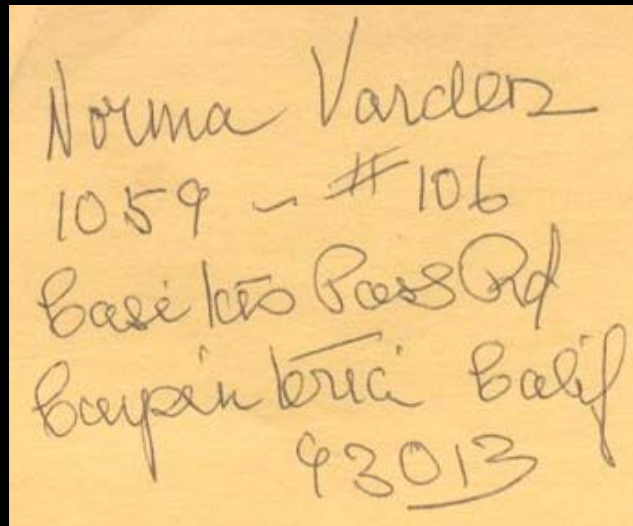 Norma Varden
1059 - #106
Casitas Pass Rd
Carpinteria Calif
93013